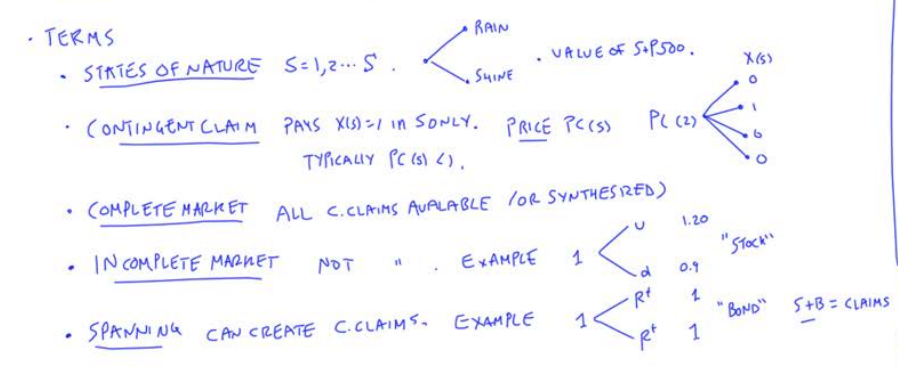 · TERMS
· STATES OF NATURE S=1,2... S. RAIN SHINE . VALUE OF S+P500.
· CONTINGENT CLAIM PAYS X(S)=1 IN S ONLY. PRICE PC(S) PC(2) X(S) 0 1 0 0
TYPICALLY PC(S)<1.
· COMPLETE MARKET ALL C.CLAIMS AVALABLE (OR SYNTHESIZED)
· INCOMPLETE MARKET NOT " . EXAMPLE 1 U 1.20 d 0.9 "STOCK"
· SPANNING CAN CREATE C.CLAIMS. EXAMPLE 1 Rᶠ 1 Rᶠ 1 "BOND" S+B = CLAIMS